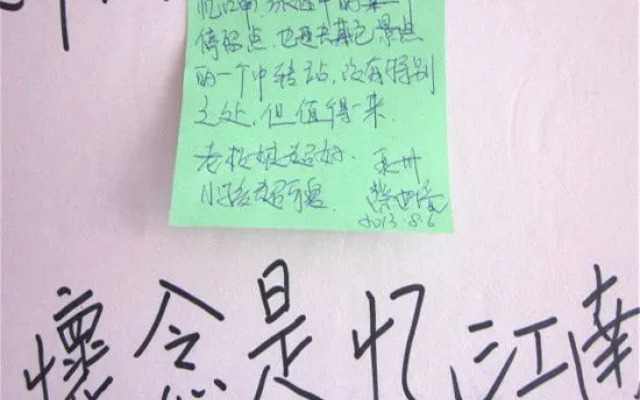 忆江南，旅途中的某一个
停留点，也是去其它景点
的一个中转站，没有特别
之处，但值得一来.
老板娘超好.
小孩超可爱.
2013.8.6
懷念是忆江南